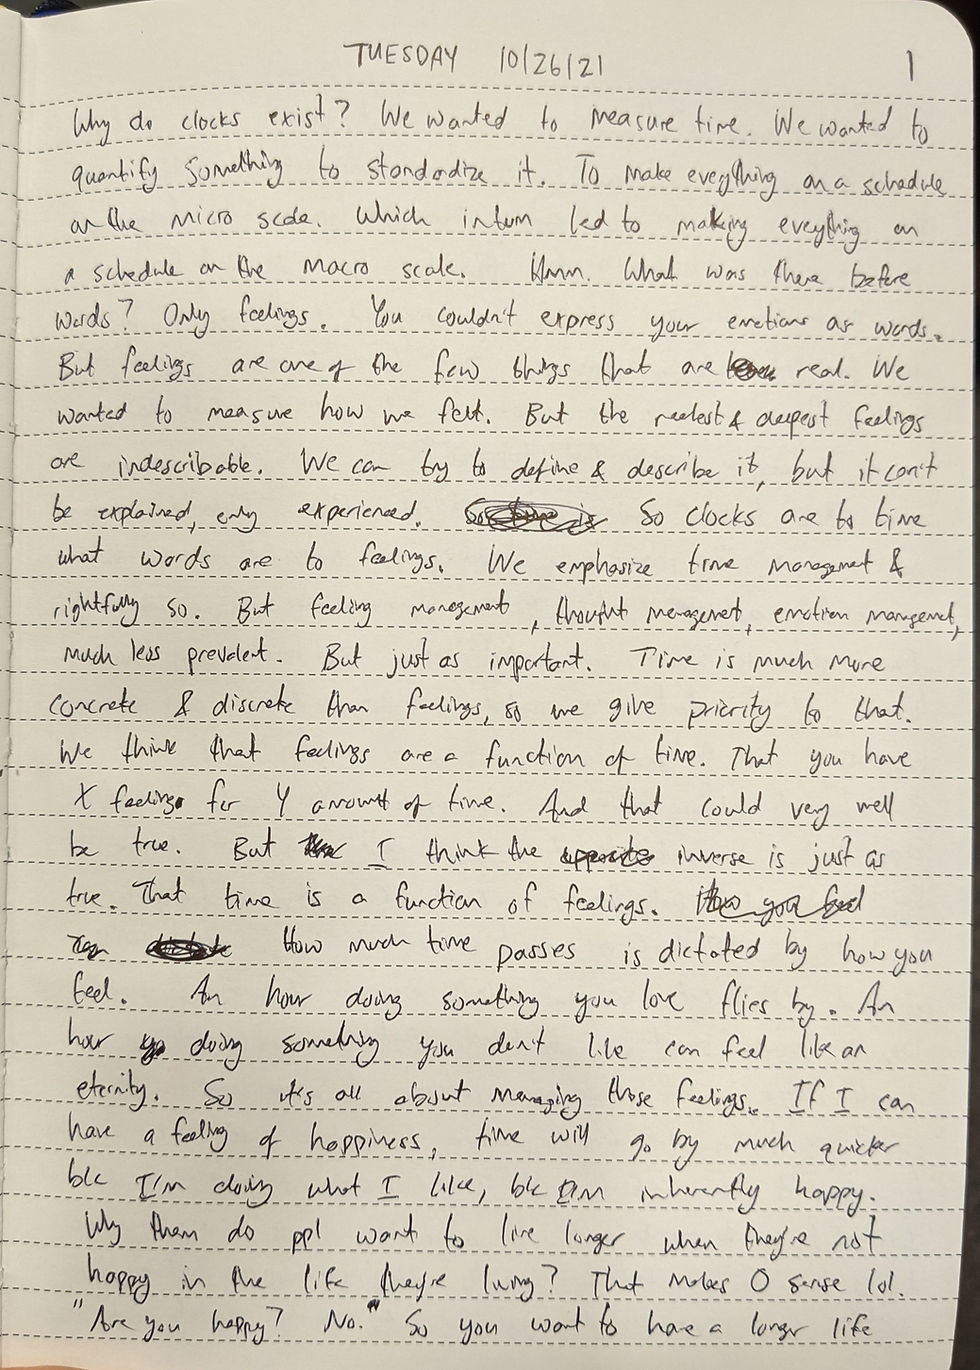 TUESDAY 10/26/21 1
Why do clocks exist? We wanted to measure time. We wanted to
quantify something to standardize it. To make everything on a schedule
on the micro scale. Which in turn led to making everything on
a schedule on the macro scale. Hmm. What was there before
words? Only feelings. You couldn't express your emotions as words.
But feelings are one of the few things that are real. We
wanted to measure how we felt. But the realest & deepest feelings
are indescribable. We can try to define & describe it, but it can't
be explained, only experienced. So clocks are to time
what words are to feelings. We emphasize time management &
rightfully so. But feeling management, thought management, emotion management,
much less prevalent. But just as important. Time is much more
concrete & discrete than feelings, so we give priority to that.
We think that feelings are a function of time. That you have
X feelings for Y amount of time. And that could very well
be true. But I think the inverse is just as
true. That time is a function of feelings. How you feel
can How much time passes is dictated by how you
feel. An hour doing something you love flies by. An
hour doing something you don't like can feel like an
eternity. So it's all about managing those feelings. If I can
have a feeling of happiness, time will go by much quicker
b/c I'm doing what I like, b/c I'm inherently happy.
Why them do ppl want to live longer when they're not
happy in the life they're living? That makes 0 sense lol.
"Are you happy? No." So you want to have a longer life